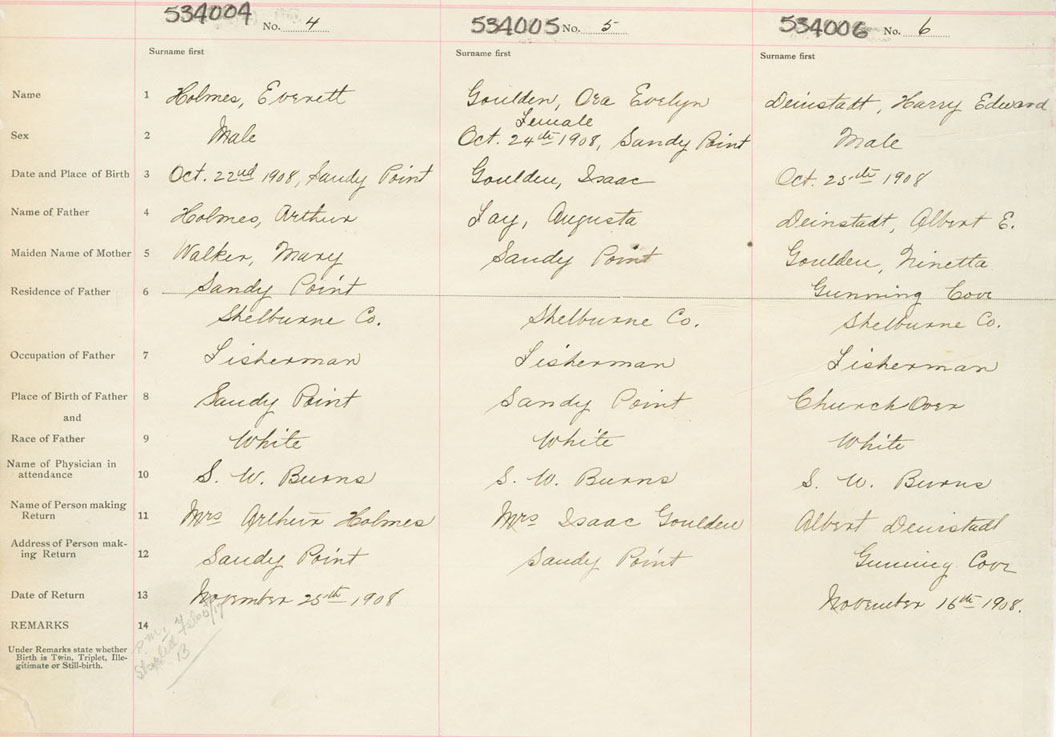 534004 No. 4
534005 No. 5
534006 No. 6
Surname first
Surname first
Surname first
Name 1 Holmes, Everett
Goulden, Ora Evelyn
Deinstadt, Harry Edward
Female
Sex 2 Male
Oct. 24th 1908, Sandy Point
Male
Date and Place of Birth 3 Oct. 22nd 1908, Sandy Point
Goulden, Isaac
Oct. 25th 1908
Name of Father 4 Holmes, Arthur
Fay, Augusta
Deinstadt, Albert E.
Maiden Name of Mother 5 Walker, Mary
Sandy Point
Goulden, Ninetta
Residence of Father 6 Sandy Point
Gunning Cove
Shelburne Co.
Shelburne Co.
Shelburne Co.
Occupation of Father 7 Fisherman
Fisherman
Fisherman
Place of Birth of Father 8 Sandy Point
Sandy Point
Church Over
and
Race of Father 9 White
White
White
Name of Physician in
attendance 10 S. W. Burns
S. W. Burns
S. W. Burns
Name of Person making
Return 11 Mrs Arthur Holmes
Mrs Isaac Goulden
Albert Deinstadt
Address of Person mak-
ing Return 12 Sandy Point
Sandy Point
Gunning Cove
Date of Return 13 November 25th 1908
November 16th 1908.
REMARKS 14
Under Remarks state whether
Birth is Twin, Triplet, Ille-
gitimate or Still-birth.
13